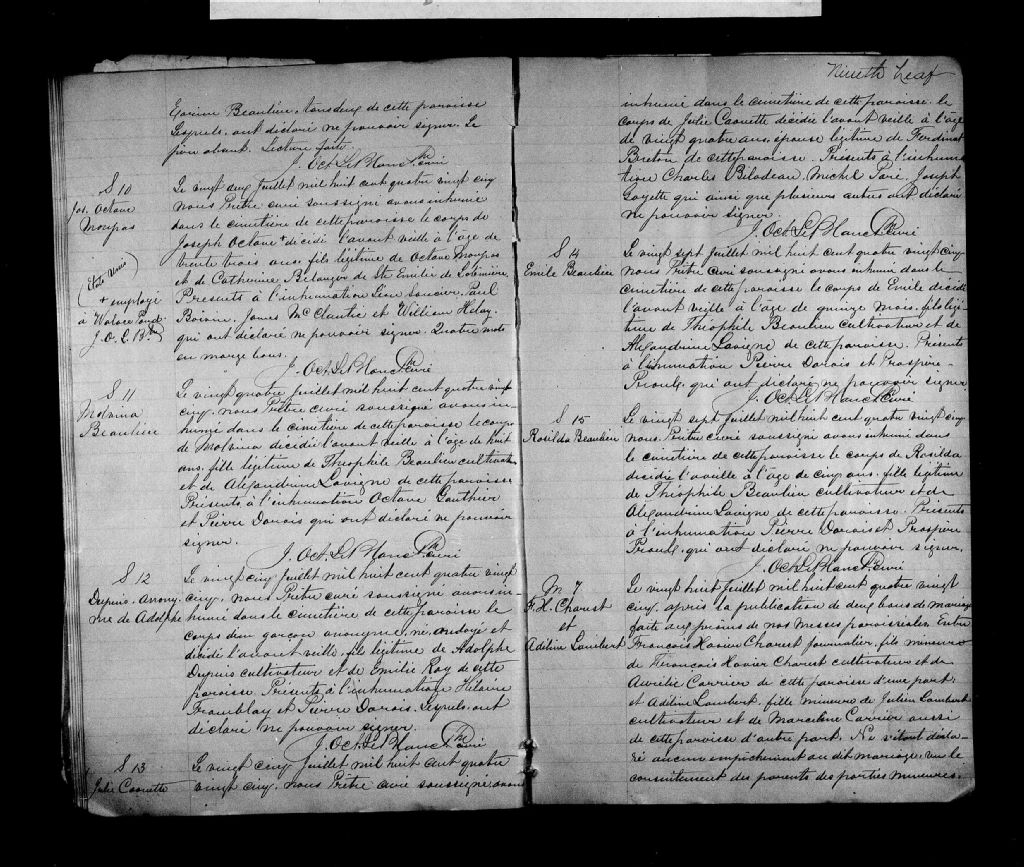 Beaulieu, tous deux de cette paroisse
lesquels ont déclaré ne pouvoir signer. Le
Lecture faite
J. Oct. LeBlanc Ptre curé
S 10
Jos. Octave
Moupas
(Etats Unis)
+ employé
à Walace Pond
J. O. L. B. Ptre
Le vingt deux Juillet mil huit cent quatre vingt cinq
nous Prêtre curé soussigné avons inhumé
dans le cimetière de cette paroisse le corps de
Joseph Octave + décédé l'avant veille à l'âge de
trente trois ans fils légitime de Octave Moupas
et de Catherine Bélanger de Ste Emilie de Lotbinière.
Présents à l'inhumation Saucier, Paul
Boivin, James McClautre et William
qui ont déclaré ne pouvoir signer. Quatre mots
en marge bons.
J. Oct. LeBlanc Ptre curé
S 11
Malvina
Beaulieu
Le vingt quatre Juillet mil huit cent quatre vingt
cinq, nous Prêtre curé soussigné avons in-
humé dans le cimetière de cette paroisse le corps
de Malvina décédée l'avant veille à l'âge de huit
ans, fille légitime de Théophile Beaulieu cultivateur
et de Alexandrine Lavigne de cette paroisse
Présents à l'inhumation Octave Gauthier
et Pierre Darois qui ont déclaré ne pouvoir
signer.
J. Oct. LeBlanc Ptre curé
S 12
Depuis. anony-
me de Adolphe
Le vingt cinq Juillet mil huit cent quatre vingt
cinq, nous Prêtre curé soussigné avons in-
humé dans le cimetière de cette paroisse le
corps d'un garçon anonyme, né, ondoyé et
décédé l'avant veille, fils légitime de Adolphe
Depuis cultivateur et de Emilie Roy de cette
paroisse. Présents à l'inhumation Hilaire
Tramblay et Pierre Darois. Lesquels ont
déclaré ne pouvoir signer.
J. Oct. LeBlanc Ptre curé
S 13
Julie Caouette
Le vingt cinq Juillet mil huit cent quatre
vingt cinq, nous Prêtre curé soussigné avons
Nineth Leaf
inhumé dans le cimetière de cette paroisse le
corps de Julie Caouette décédée l'avant veille à l'âge
de vingt quatre ans, épouse légitime de Ferdinand
Breton de cette paroisse. Présents à l'inhuma-
tion Charles Bilodeau, Michel Paré, Joseph
Goyette qui ainsi que plusieurs autres ont déclaré
ne pouvoir signer.
J. Oct. LeBlanc Ptre curé
S 14
Emile Beaulieu
Le vingt sept Juillet mil huit cent quatre vingt cinq
nous Prêtre curé soussigné avons inhumé dans le
cimetière de cette paroisse le corps de Emile décédé
l'avant veille à l'âge de quinze mois, fils légi-
time de Théophile Beaulieu cultivateur et de
Alexandrine Lavigne de cette paroisse. Présents
à l'inhumation Pierre Darois et Prospère
Proulx qui ont déclaré ne pouvoir signer
J. Oct. LeBlanc Ptre curé
S 15
Rosilda Beaulieu
Le vingt sept Juillet mil huit cent quatre vingt cinq
nous Prêtre curé soussigné avons inhumé dans
le cimetière de cette paroisse le corps de Rosilda
décédée l'avveille à l'âge de cinq ans, fille légitime
de Théophile Beaulieu cultivateur et de
Alexandrine Lavigne de cette paroisse. Présents
à l'inhumation Pierre Darois et Prospère
Proulx, qui ont déclaré ne pouvoir signer,
J. Oct. LeBlanc Ptre curé
M 7
F. X. Charest
et
Adéline Lambert
Le vingt huit Juillet mil huit cent quatre vingt
cinq, après la publication de deux bans de mariage
faite aux prônes de nos messes paroissiales Entre
François Xavier Charest journalier, fils mineur
de François Xavier Charest cultivateur et de
Aurélie Carrier de cette paroisse d'une part;
et Adéline Lambert, fille mineure de Julien Lambert
cultivateur et de Marceline Carrier aussi
de cette paroisse d'autre part. Ne s'étant décla-
ré aucun empêchement au dit mariage; vu le
consentement des parents des parties mineures,